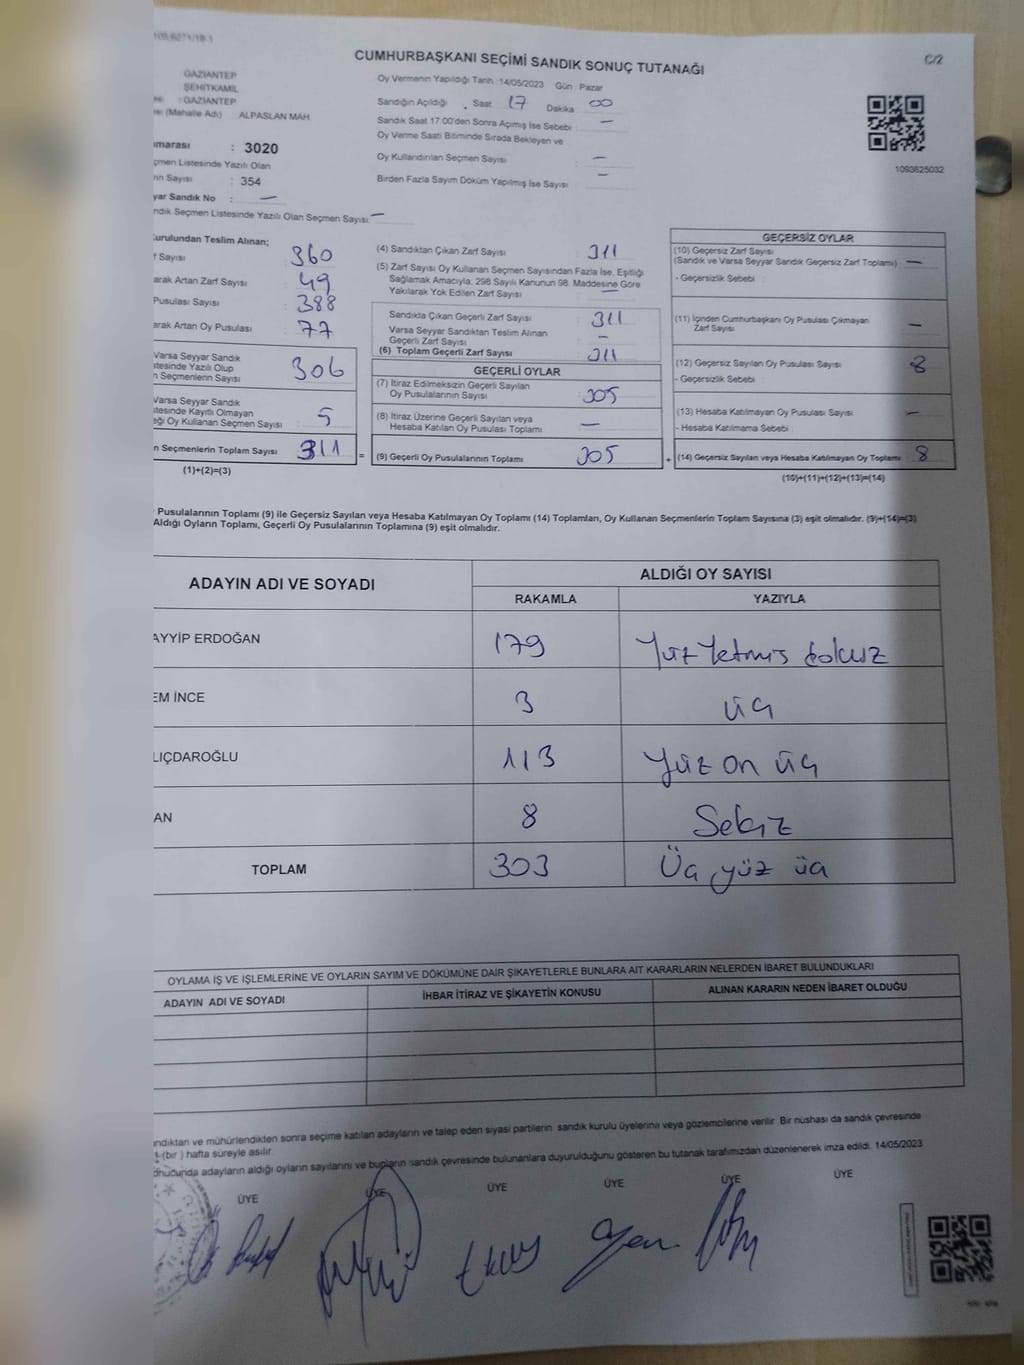 CUMHURBAŞKANI SEÇİMİ SANDIK SONUÇ TUTANAĞI
C/2
GAZİANTEP
ŞEHİTKAMİL
: GAZİANTEP
(Mahalle Adı) ALPASLAN MAH
Oy Vermenin Yapıldığı Tarih :14/05/2023 Gün : Pazar
Sandığın Açıldığı Saat 17 Dakika 00
Sandık Saat 17:00'den Sonra Açmış İse Sebebi : —
Oy Verme Saati Bitiminde Sırada Bekleyen ve
Oy Kullandırılan Seçmen Sayısı —
Birden Fazla Sayım Döküm Yapılmış İse Sayısı —
1093625032
marası : 3020
çmen Listesinde Yazılı Olan
n Sayısı : 354
yar Sandık No : —
ndık Seçmen Listesinde Yazılı Olan Seçmen Sayısı: —
urulundan Teslim Alınan;
f Sayısı 360
arak Artan Zarf Sayısı 49
Pusulası Sayısı 388
arak Artan Oy Pusulası 77
Varsa Seyyar Sandık
tesinde Yazılı Olup
n Seçmenlerin Sayısı 306
Varsa Seyyar Sandık
tesinde Kayıtlı Olmayan
eği Oy Kullanan Seçmen Sayısı 5
n Seçmenlerin Toplam Sayısı 311 =
(1)+(2)=(3)
(4) Sandıktan Çıkan Zarf Sayısı 311
(5) Zarf Sayısı Oy Kullanan Seçmen Sayısından Fazla İse, Eşitliği
Sağlamak Amacıyla; 298 Sayılı Kanunun 98. Maddesine Göre
Yakılarak Yok Edilen Zarf Sayısı —
Sandıkta Çıkan Geçerli Zarf Sayısı 311
Varsa Seyyar Sandıktan Teslim Alınan
Geçerli Zarf Sayısı —
(6) Toplam Geçerli Zarf Sayısı 311
GEÇERLİ OYLAR
(7) İtiraz Edilmeksizin Geçerli Sayılan
Oy Pusulalarının Sayısı 305
(8) İtiraz Üzerine Geçerli Sayılan veya
Hesaba Katılan Oy Pusulası Toplamı —
(9) Geçerli Oy Pusulalarının Toplamı 305 +
GEÇERSİZ OYLAR
(10) Geçersiz Zarf Sayısı
(Sandık ve Varsa Seyyar Sandık Geçersiz Zarf Toplamı) —
- Geçersizlik Sebebi :
(11) İçinden Cumhurbaşkanı Oy Pusulası Çıkmayan
Zarf Sayısı —
(12) Geçersiz Sayılan Oy Pusulası Sayısı 8
- Geçersizlik Sebebi :
(13) Hesaba Katılmayan Oy Pusulası Sayısı —
- Hesaba Katılmama Sebebi :
(14) Geçersiz Sayılan veya Hesaba Katılmayan Oy Toplamı 8
(10)+(11)+(12)+(13)=(14)
Pusulalarının Toplamı (9) ile Geçersiz Sayılan veya Hesaba Katılmayan Oy Toplamı (14) Toplamları, Oy Kullanan Seçmenlerin Toplam Sayısına (3) eşit olmalıdır. (9)+(14)=(3)
Aldığı Oyların Toplamı, Geçerli Oy Pusulalarının Toplamına (9) eşit olmalıdır.
ADAYIN ADI VE SOYADI ALDIĞI OY SAYISI
RAKAMLA YAZIYLA
AYYİP ERDOĞAN 179 Yüz Yetmiş dokuz
EM İNCE 3 üç
LIÇDAROĞLU 113 Yüz on üç
AN 8 Sekiz
TOPLAM 303 Üç yüz üç
OYLAMA İŞ VE İŞLEMLERİNE VE OYLARIN SAYIM VE DÖKÜMÜNE DAİR ŞİKAYETLERLE BUNLARA AİT KARARLARIN NELERDEN İBARET BULUNDUKLARI
ADAYIN ADI VE SOYADI İHBAR İTİRAZ VE ŞİKAYETİN KONUSU ALINAN KARARIN NEDEN İBARET OLDUĞU
ndıktan ve mühürlendikten sonra seçime katılan adayların ve talep eden siyasi partilerin sandık kurulu üyelerine veya gözlemcilerine verilir. Bir nüshası da sandık çevresinde
(bir ) hafta süreyle asılır.
onucunda adayların aldığı oyların sayılarını ve bunların sandık çevresinde bulunanlara duyurulduğunu gösteren bu tutanak tarafımızdan düzenlenerek imza edildi. 14/05/2023
ÜYE ÜYE ÜYE ÜYE ÜYE ÜYE